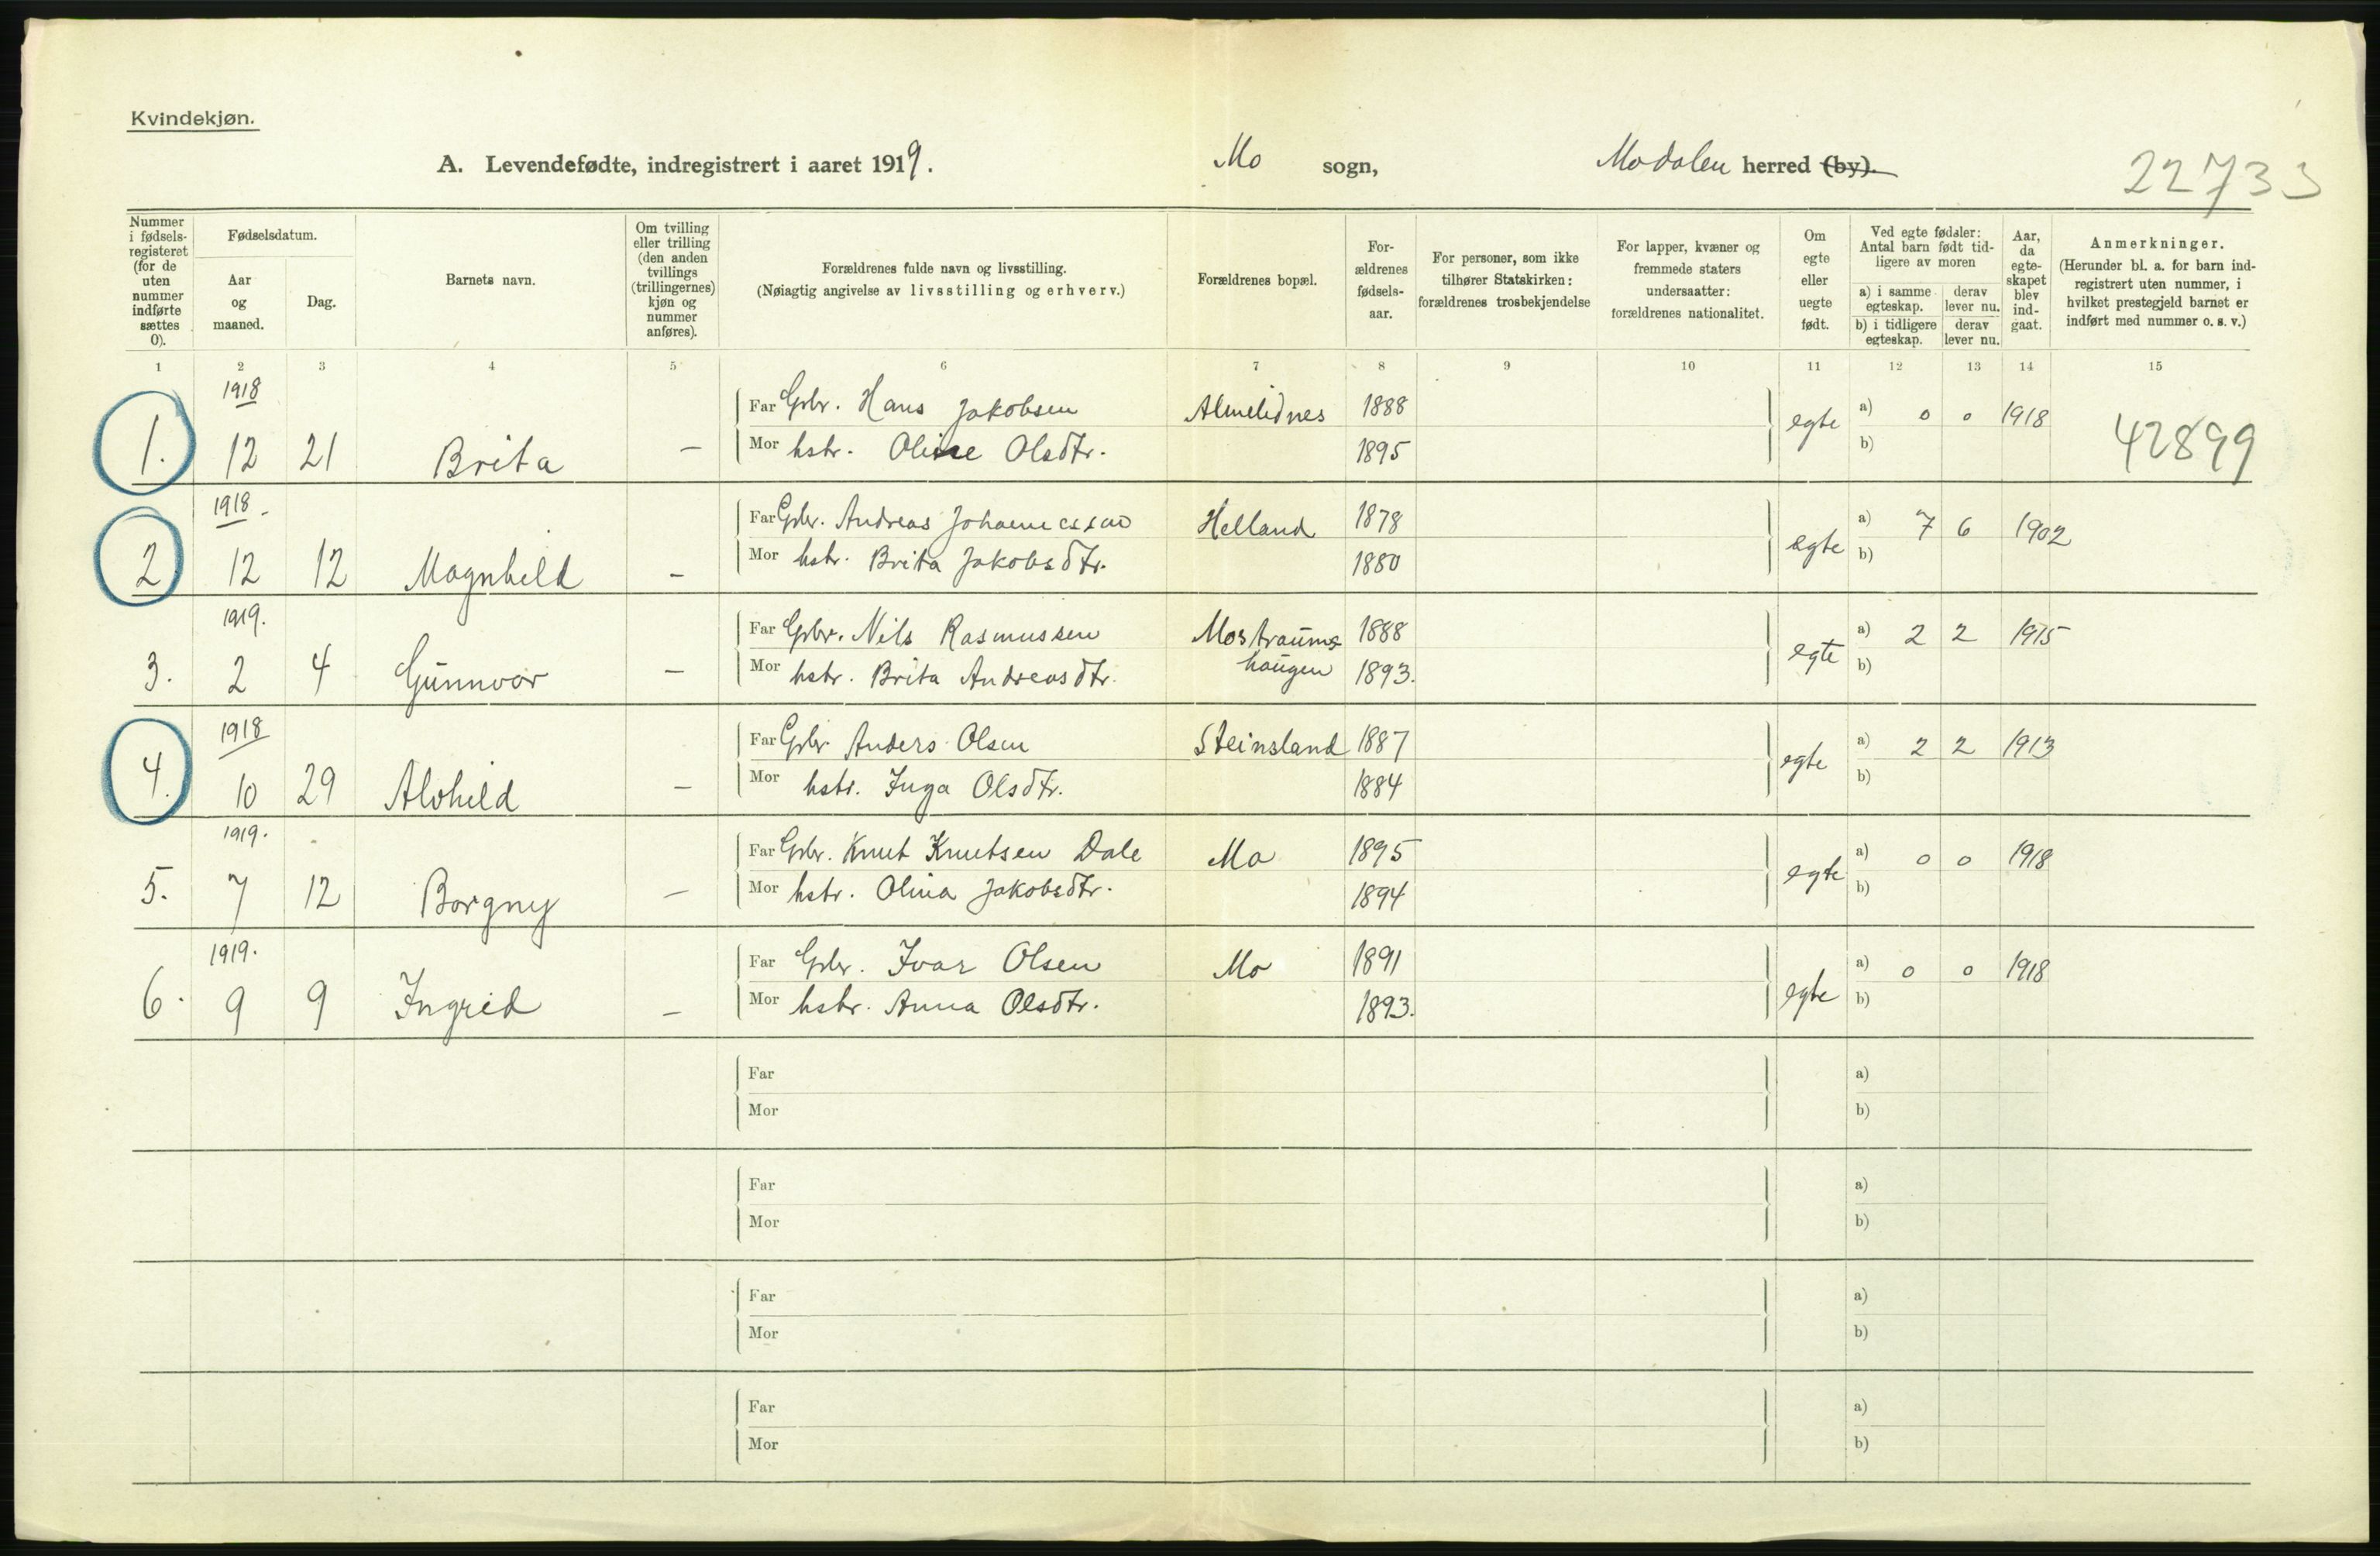 Kvindekjøn.
A. Levendefødte, indregistrert i aaret 1919. Mo sogn, Modalen herred (by).
22733
Nummer i fødsels-registeret (for de uten nummer indførte sættes 0).
Fødselsdatum.
Aar og maaned.
Dag.
Barnets navn.
Om tvilling eller trilling (den anden tvillings (trillingernes) kjøn og nummer anføres).
Forældrenes fulde navn og livsstilling.
(Nøiagtig angivelse av livsstilling og erhverv.)
Forældrenes bopæl.
For-ældrenes fødsels-aar.
For personer, som ikke tilhører Statskirken: forældrenes trosbekjendelse
For lapper, kvæner og fremmede staters undersaatter: forældrenes nationalitet.
Om egte eller uegte født.
Ved egte fødsler: Antal barn født tid-ligere av moren
a) i samme egteskap. derav lever nu.
b) i tidligere egteskap. derav lever nu.
Aar, da egte-skapet blev ind-gaat.
Anmerkninger.
(Herunder bl. a. for barn ind-registrert uten nummer, i hvilket prestegjeld barnet er indført med nummer o. s. v.)
1 2 3 4 5 6 7 8 9 10 11 12 13 14 15
1918
Far Gbr. Hans Jakobsen Almelidnes 1888 egte a) 0 0 1918
1. 12 21 Brita — Mor hstr. Oline Olsdtr. 1895 b)
42899
1918
Far Gbr. Andreas Johannessen Helland 1878 egte a) 7 6 1902
2 12 12 Magnhild — Mor hstr. Brita Jakobsdtr. 1880 b)
1919.
Far Gbr. Nils Rasmussen Mostraums- 1888 egte a) 2 2 1915
3. 2 4 Gunnvor — Mor hstr. Brita Andreasdtr. haugen 1893. b)
1918
Far Gbr. Anders Olsen Steinsland 1887 egte a) 2 2 1913
4. 10 29 Alvhild — Mor hstr. Inga Olsdtr. 1884 b)
1919.
Far Gbr. Knut Knutsen Dale Mo 1895 egte a) 0 0 1918
5. 7 12 Borgny — Mor hstr. Olina Jakobsdtr. 1894 b)
1919.
Far Gbr. Ivar Olsen Mo 1891 egte a) 0 0 1918
6. 9 9 Ingrid — Mor hstr. Anna Olsdtr. 1893. b)
Far a)
Mor b)
Far a)
Mor b)
Far a)
Mor b)
Far a)
Mor b)